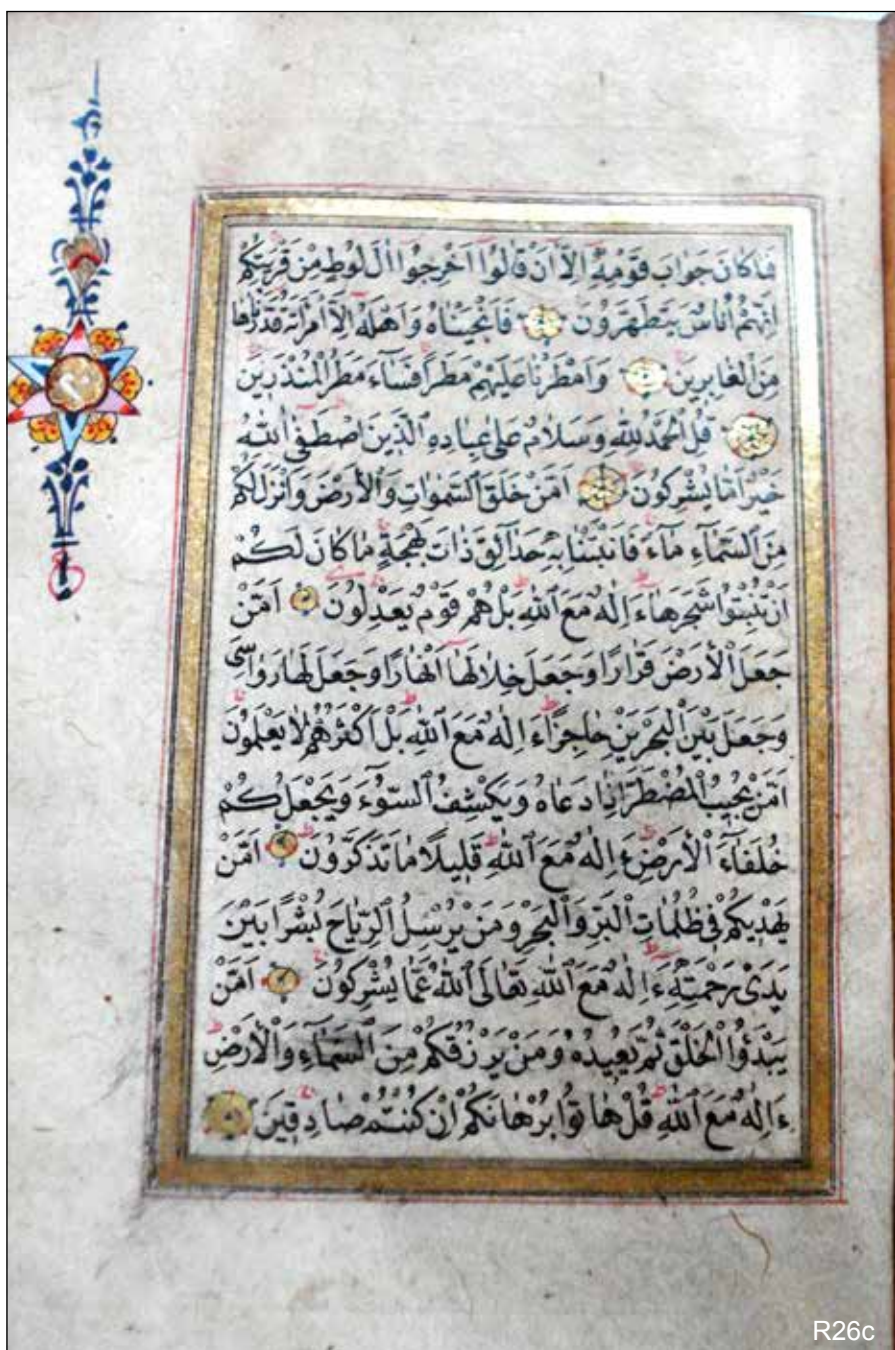 فَمَا كَانَ جَوَابَ قَوْمِهِ اِلَّا اَنْ قَالُوا اَخْرِجُوا اٰلَ لُوطٍ مِنْ قَرْيَتِكُمْ
اِنَّهُمْ اُنَاسٌ يَتَطَهَّرُونَ فَاَنْجَيْنَاهُ وَاَهْلَهُ اِلَّا امْرَاَتَهُ قَدَّرْنَاهَا
مِنَ الْغَابِرِينَ وَاَمْطَرْنَا عَلَيْهِمْ مَطَرًا فَسَاءَ مَطَرُ الْمُنْذَرِينَ
قُلِ الْحَمْدُ لِلّٰهِ وَسَلَامٌ عَلٰى عِبَادِهِ الَّذِينَ اصْطَفٰى اٰللّٰهُ
خَيْرٌ اَمَّا يُشْرِكُونَ اَمَّنْ خَلَقَ السَّمٰوَاتِ وَالْاَرْضَ وَاَنْزَلَ لَكُمْ
مِنَ السَّمَاءِ مَاءً فَاَنْبَتْنَا بِهِ حَدَائِقَ ذَاتَ بَهْجَةٍ مَا كَانَ لَكُمْ
اَنْ تُنْبِتُوا شَجَرَهَا ءَاِلٰهٌ مَعَ اللّٰهِ بَلْ هُمْ قَوْمٌ يَعْدِلُونَ اَمَّنْ
جَعَلَ الْاَرْضَ قَرَارًا وَجَعَلَ خِلَالَهَا اَنْهَارًا وَجَعَلَ لَهَا رَوَاسِيَ
وَجَعَلَ بَيْنَ الْبَحْرَيْنِ حَاجِزًا ءَاِلٰهٌ مَعَ اللّٰهِ بَلْ اَكْثَرُهُمْ لَا يَعْلَمُونَ
اَمَّنْ يُجِيبُ الْمُضْطَرَّ اِذَا دَعَاهُ وَيَكْشِفُ السُّوءَ وَيَجْعَلُكُمْ
خُلَفَاءَ الْاَرْضِ ءَاِلٰهٌ مَعَ اللّٰهِ قَلِيلًا مَا تَذَكَّرُونَ اَمَّنْ
يَهْدِيكُمْ فِي ظُلُمَاتِ الْبَرِّ وَالْبَحْرِ وَمَنْ يُرْسِلُ الرِّيَاحَ بُشْرًا بَيْنَ
يَدَيْ رَحْمَتِهِ ءَاِلٰهٌ مَعَ اللّٰهِ تَعَالَى اللّٰهُ عَمَّا يُشْرِكُونَ اَمَّنْ
يَبْدَؤُا الْخَلْقَ ثُمَّ يُعِيدُهُ وَمَنْ يَرْزُقُكُمْ مِنَ السَّمَاءِ وَالْاَرْضِ
ءَاِلٰهٌ مَعَ اللّٰهِ قُلْ هَاتُوا بُرْهَانَكُمْ اِنْ كُنْتُمْ صَادِقِينَ
R26c